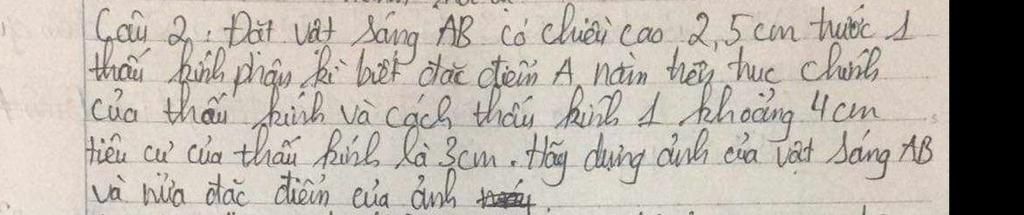 Câu 2: Đặt vật sáng AB có chiều cao 2,5cm trước 1
thấu kính phân kì biết đặc điểm A nằm trên trục chính
của thấu kính và cách thấu kính 1 khoảng 4cm
tiêu cự của thấu kính là 3cm. Hãy dựng ảnh của vật sáng AB
và nửa đặc điểm của ảnh